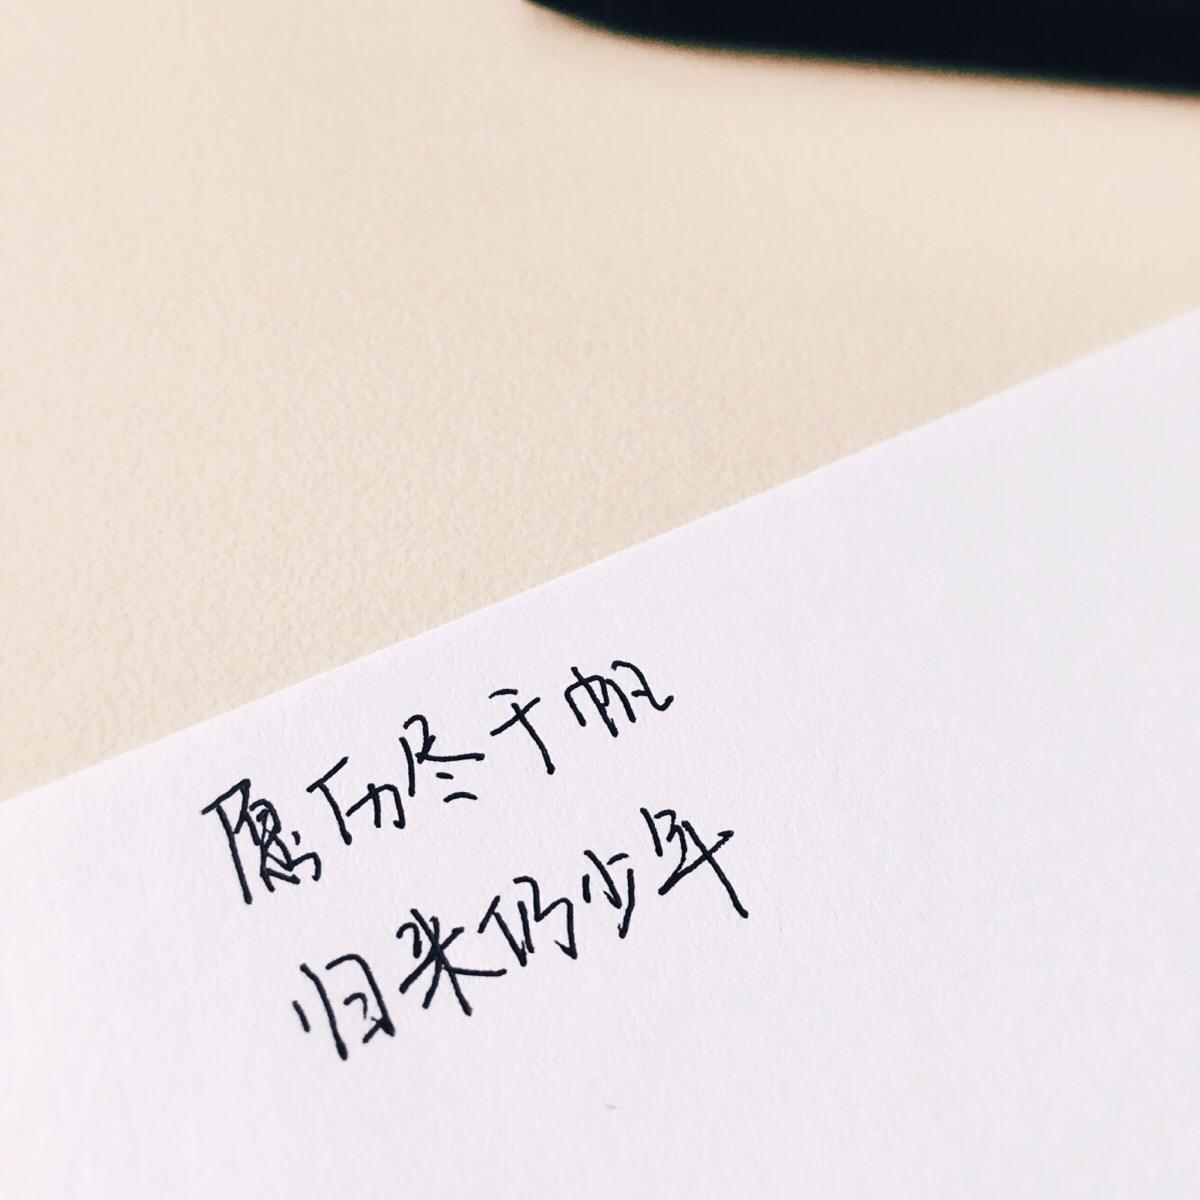 愿历尽千帆
归来仍少年